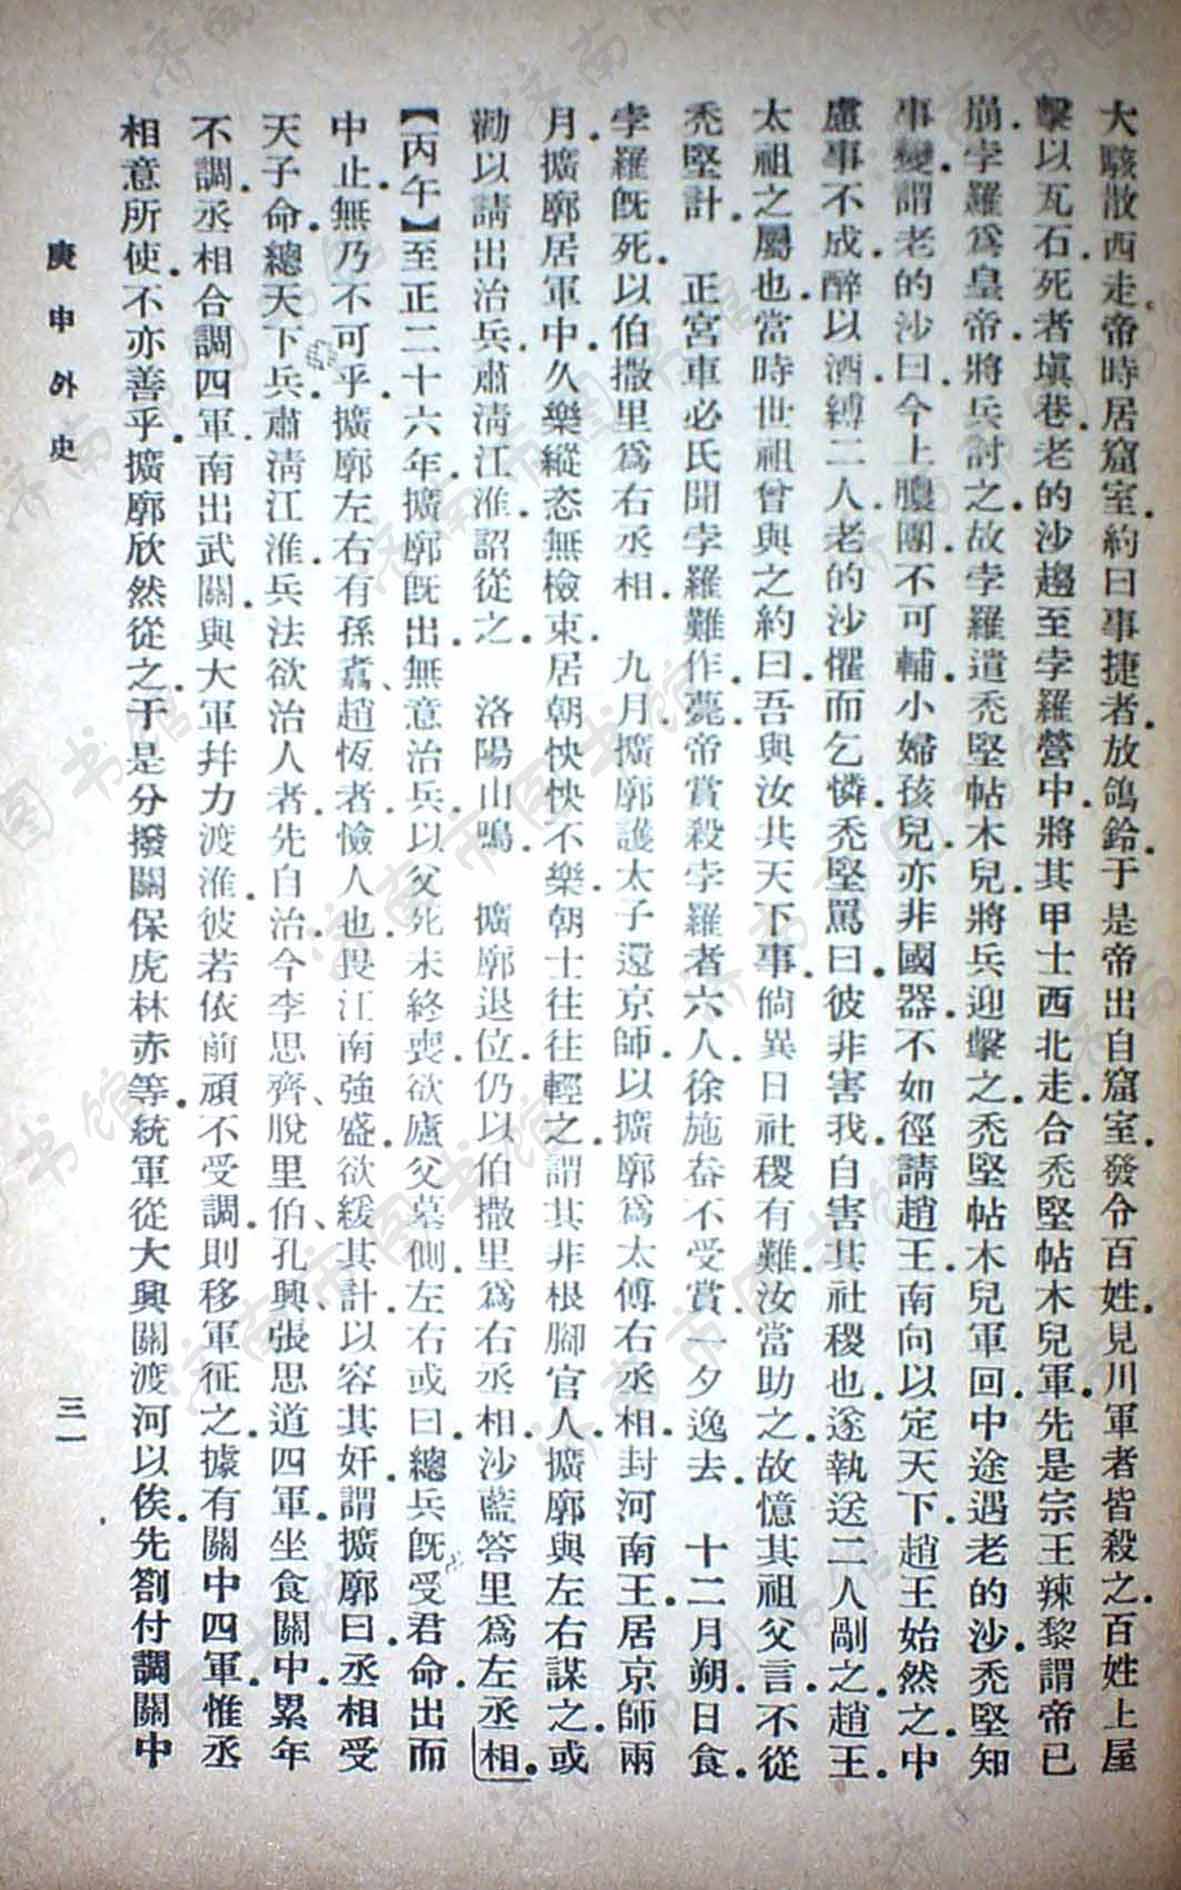 大駭散西走。帝時居窟室。約曰事捷者。放鴿鈴。于是帝出自窟室。發令百姓。見川軍者皆殺之。百姓上屋
擊以瓦石。死者塡巷。老的沙趨至孛羅營中。將其甲士西北走。合禿堅帖木兒軍。先是宗王辣黎謂帝已
崩。孛羅爲皇帝。將兵討之。故孛羅遣禿堅帖木兒。將兵迎擊之。禿堅帖木兒軍回。中途遇老的沙。禿堅知
事變。謂老的沙曰。今上臕團。不可輔。小婦孩兒。亦非國器。不如徑請趙王。南向以定天下。趙王始然之。中
慮事不成。醉以酒。縛二人。老的沙懼而乞憐。禿堅罵曰。彼非害我。自害其社稷也。遂執送二人剮之。趙王。
太祖之屬也。當時世祖曾與之約曰。吾與汝共天下事。倘異日社稷有難。汝當助之。故憶其祖父言。不從
禿堅計。　正宮車必氏聞孛羅難作。薨。帝賞殺孛羅者六人。徐施畚不受賞。一夕逸去。　十二月朔。日食。
孛羅旣死。以伯撒里爲右丞相。　九月。擴廓護太子還京師。以擴廓爲太傅右丞相。封河南王。居京師兩
月。擴廓居軍中。久樂縱恣無檢束。居朝怏怏不樂。朝士往往輕之。謂其非根腳官人。擴廓與左右謀之。或
勸以請出治兵。肅淸江淮。詔從之。　洛陽山鳴。　擴廓退位。仍以伯撒里爲右丞相。沙藍答里爲左丞相。
【丙午】至正二十六年。擴廓旣出。無意治兵。以父死未終喪。欲廬父墓側。左右或曰。總兵旣受君命。出而
中止。無乃不可乎。擴廓左右有孫翥、趙恆者。憸人也。畏江南強盛。欲緩其計。以容其奸。謂擴廓曰。丞相受
天子命。總天下兵。肅淸江淮。兵法欲治人者。先自治。今李思齊、脫里伯、孔興、張思道四軍。坐食關中。累年
不調。丞相合調四軍。南出武關。與大軍幷力渡淮。彼若依前頑不受調。則移軍征之。據有關中。四軍惟丞
相意所使。不亦善乎。擴廓欣然從之。于是分撥關保虎林赤等。統軍從大興關渡河以俟。先劄付調關中
庚申外史
三一